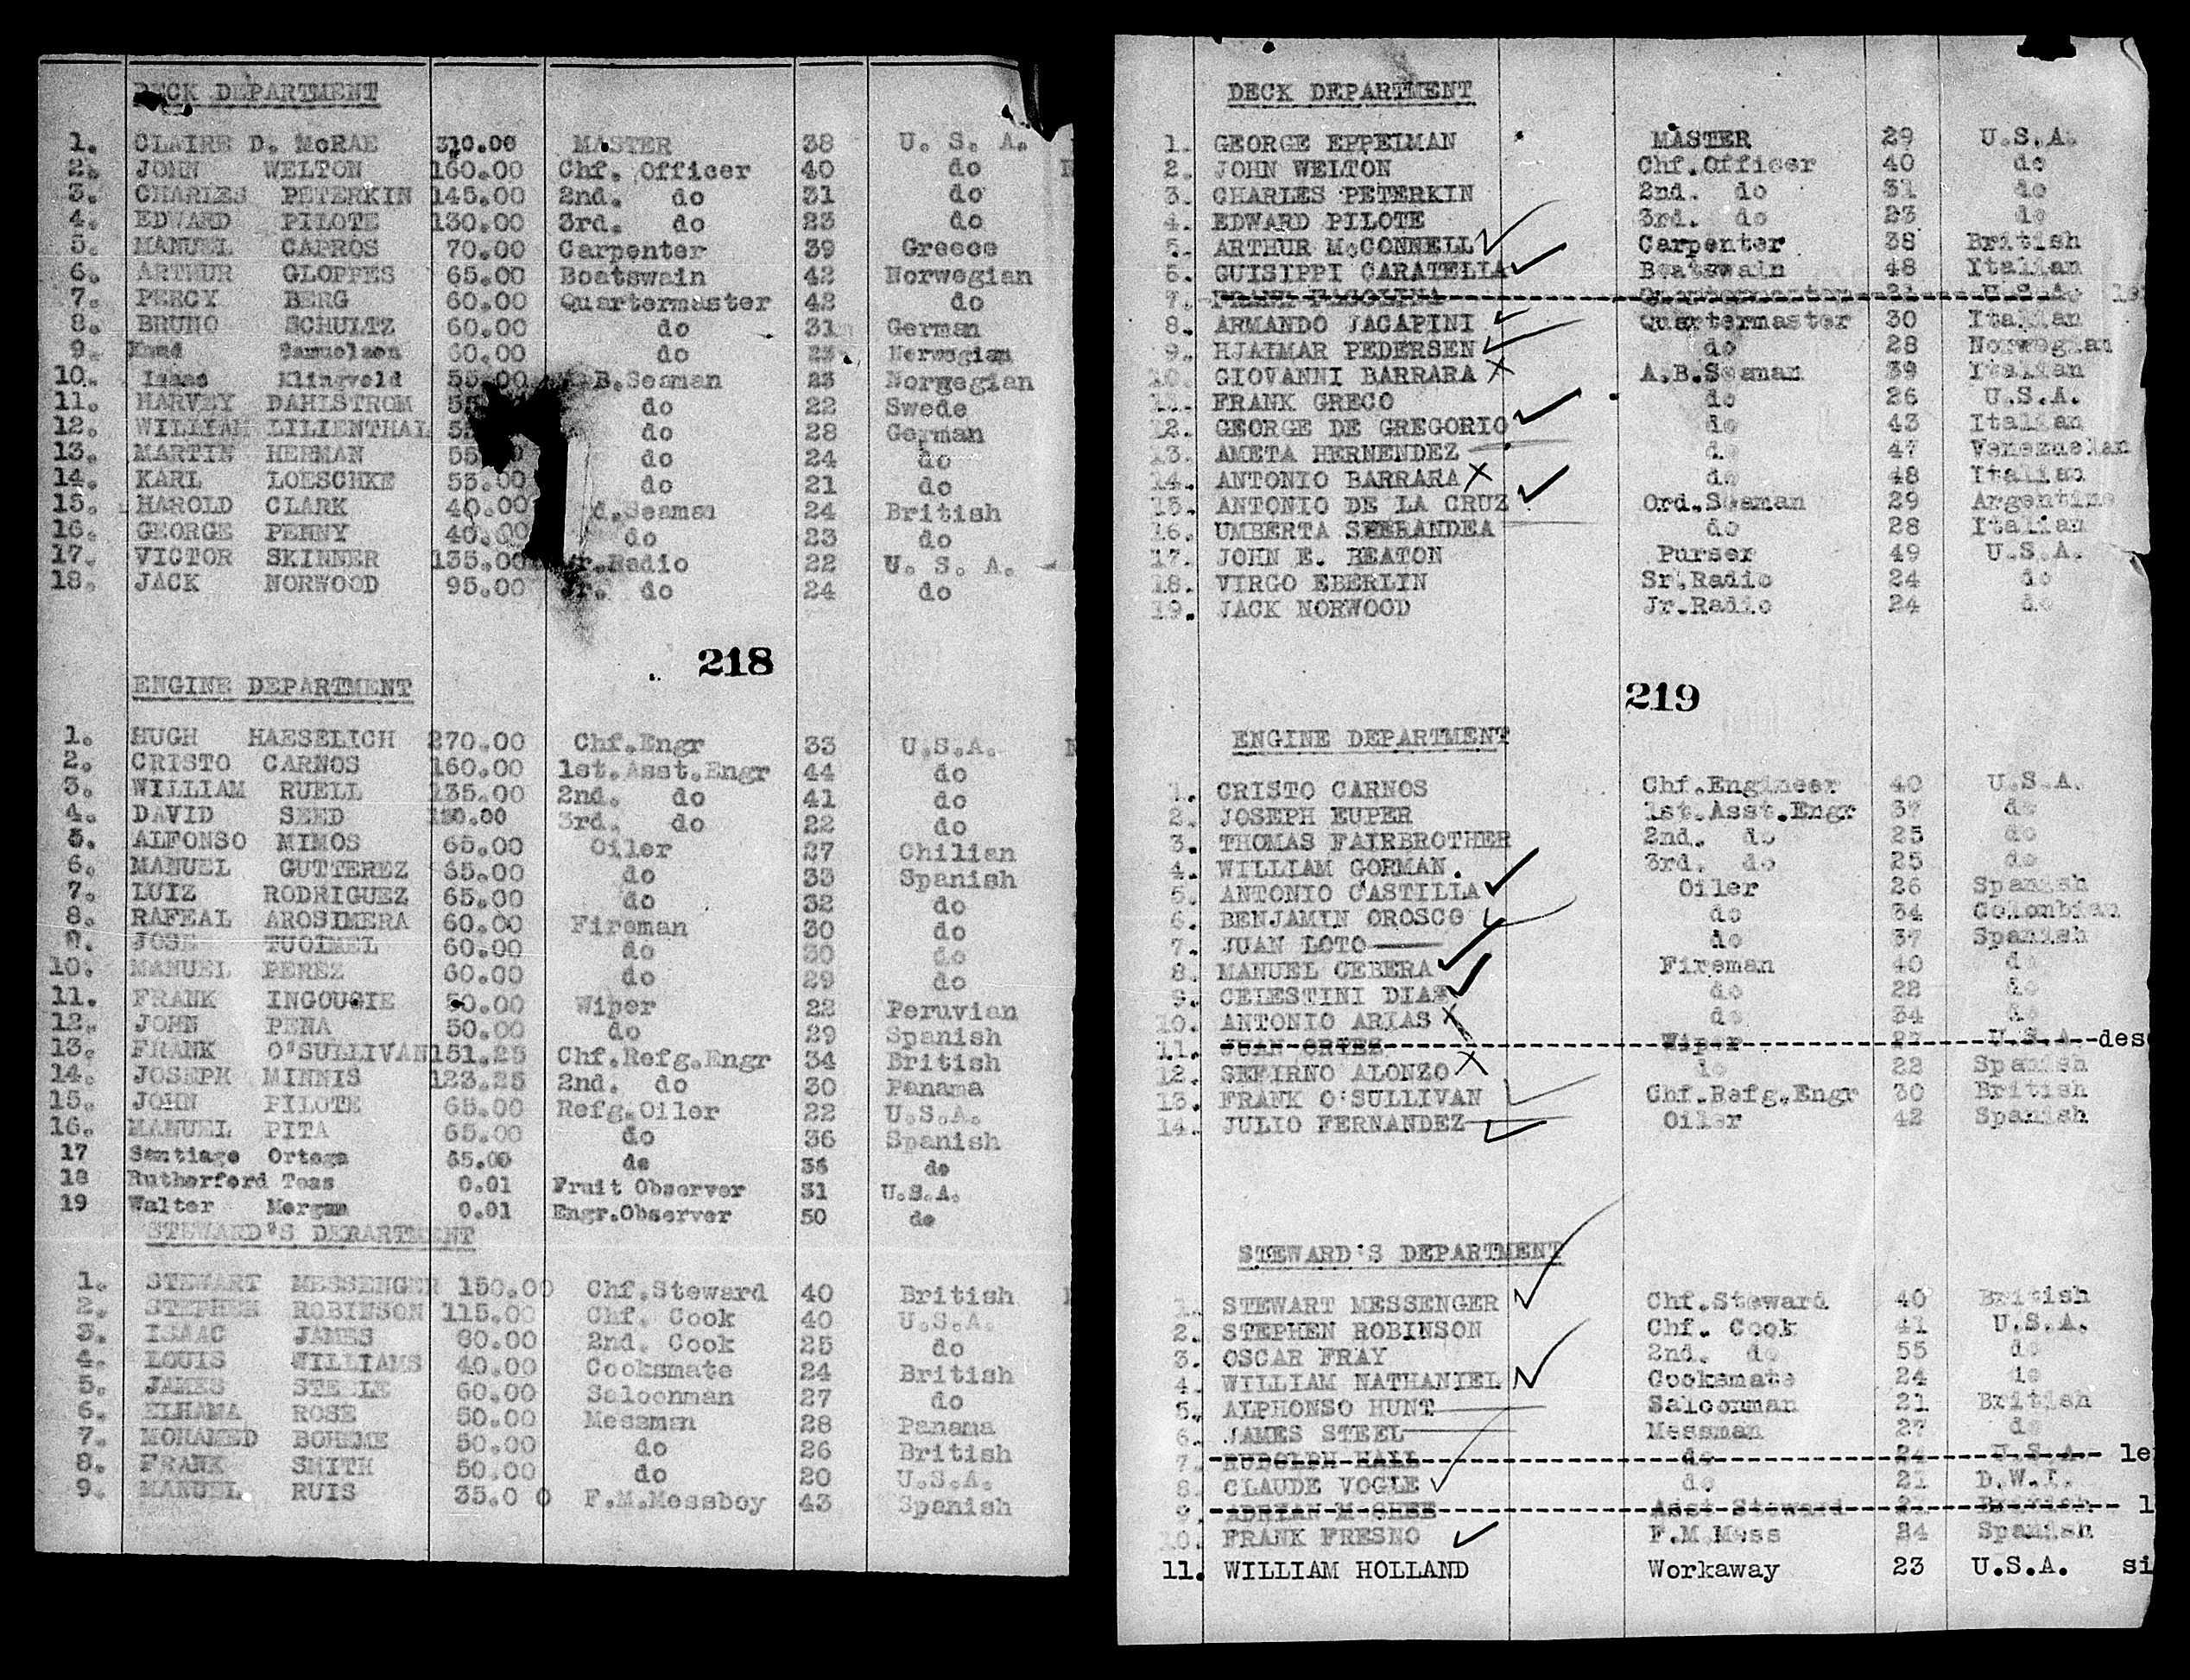 DECK DEPARTMENT
1. CLAIRE D. McRAE 310.00 MASTER 38 U. S. A.
2. JOHN WELTON 160.00 Chf. Officer 40 do
3. CHARLES PETERKIN 145.00 2nd. do 31 do
4. EDWARD PILOTE 130.00 3rd. do 23 do
5. MANUEL CAPROS 70.00 Carpenter 39 Greece
6. ARTHUR GLOPPES 65.00 Boatswain 42 Norwegian
7. PERCY BERG 60.00 Quartermaster 42 do
8. BRUNO SCHULTZ 60.00 do 31 German
9. Knud Samuelsen 60.00 do 23 Norwegian
10. Isaac Klingveld 55.00 B.Seaman 23 Norwegian
11. HARVEY DAHLSTROM 55 do 22 Swede
12. WILLIAM LILIENTHAL 55 do 28 German
13. MARTIN HERMAN 55 0 do 24 do
14. KARL LOESCHKE 55.00 do 21 do
15. HAROLD CLARK 40.00 d.Seaman 24 British
16. GEORGE PENNY 40.00 do 23 do
17. VICTOR SKINNER 135.00 r.Radio 22 U. S. A.
18. JACK NORWOOD 95.00 r. do 24 do
218
ENGINE DEPARTMENT
1. HUGH HAESELICH 270.00 Chf.Engr 33 U.S.A.
2. CRISTO CARNOS 160.00 1st.Asst.Engr 44 do
3. WILLIAM RUELL 135.00 2nd. do 41 do
4. DAVID SEED 120.00 3rd. do 22 do
5. ALFONSO MIMOS 65.00 Oiler 27 Chilian
6. MANUEL GUTTEREZ 65.00 do 33 Spanish
7. LUIZ RODRIGUEZ 65.00 do 32 do
8. RAFEAL AROSIMERA 60.00 Fireman 30 do
9. JOSE TUOIMEL 60.00 do 30 do
10. MANUEL PEREZ 60.00 do 29 do
11. FRANK INGOUGIE 50.00 Wiper 22 Peruvian
12. JOHN PENA 50.00 do 29 Spanish
13. FRANK O'SULLIVAN 151.25 Chf.Refg.Engr 34 British
14. JOSEPH MINNIS 123.25 2nd. do 30 Panama
15. JOHN PILOTE 65.00 Refg.Oiler 22 U.S.A.
16. MANUEL PITA 65.00 do 36 Spanish
17 Santiago Ortega 65.00 do 36 do
18 Rutherford Toas 0.01 Fruit Observer 31 U.S.A.
19 Walter Morgan 0.01 Engr.Observer 50 do
STEWARD'S DERARTMENT
1. STEWART MESSENGER 150.00 Chf.Steward 40 British
2. STEPHEN ROBINSON 115.00 Chf. Cook 40 U.S.A.
3. ISAAC JAMES 80.00 2nd. Cook 25 do
4. LOUIS WILLIAMS 40.00 Cooksmate 24 British
5. JAMES STEELE 60.00 Saloonman 27 do
6. ELHAMA ROSE 50.00 Messman 28 Panama
7. MOHAMED BOHEME 50.00 do 26 British
8. FRANK SMITH 50.00 do 20 U.S.A.
9. MANUEL RUIS 35.0 0 F.M.Messboy 43 Spanish
DECK DEPARTMENT
1. GEORGE EPPELMAN MASTER 29 U.S.A.
2. JOHN WELTON Chf.Officer 40 do
3. CHARLES PETERKIN 2nd. do 31 do
4. EDWARD PILOTE 3rd. do 23 do
5. ARTHUR McCONNELL Carpenter 38 British
6. GUISIPPI CARATELIA Boatswain 48 Italian
7. Quartermaster 21 U.S.A.
8. ARMANDO JACAPINI Quartermaster 30 Italian
9. HJAIMAR PEDERSEN do 28 Norwegian
10. GIOVANNI BARRARA A.B.Seaman 39 Italian
11. FRANK GRECO do 26 U.S.A.
12. GEORGE DE GREGORIO do 43 Italian
13. AMETA HERNENDEZ do 47 Venezuelan
14. ANTONIO BARRARA do 48 Italian
15. ANTONIO DE LA CRUZ Ord.Seaman 29 Argentine
16. UMBERTA SPERANDEA do 28 Italian
17. JOHN E. BEATON Purser 49 U.S.A.
18. VIRGO EBERLIN Sr.Radio 24 do
19. JACK NORWOOD Jr.Radio 24 do
219
ENGINE DEPARTMENT
1. CRISTO CARNOS Chf.Engineer 40 U.S.A.
2. JOSEPH EUPER 1st.Asst.Engr 37 do
3. THOMAS FAIRBROTHER 2nd. do 25 do
4. WILLIAM GORMAN. 3rd. do 25 do
5. ANTONIO CASTILIA Oiler 26 Spanish
6. BENJAMIN OROSCO do 34 Colonbian
7. JUAN LOTO do 37 Spanish
8. MANUEL CEBERA Fireman 40 do
9. CELESTINI DIAZ do 22 do
10. ANTONIO ARIAS do 34 do
11. JUAN ORTEZ Wiper 23 U.S.A. des
12. SEFIRNO ALONZO do 22 Spanish
13. FRANK O'SULLIVAN Chf.Refg.Engr 30 British
14. JULIO FERNANDEZ Oiler 42 Spanish
STEWARD'S DEPARTMENT
1. STEWART MESSENGER Chf.Steward 40 British
2. STEPHEN ROBINSON Chf. Cook 41 U.S.A.
3. OSCAR FRAY 2nd. do 55 do
4. WILLIAM NATHANIEL Cooksmate 24 do
5. ALPHONSO HUNT Saloonman 21 British
6. JAMES STEEL Messman 27 do
7. RUDOLPH HALL do 24 U.S.A. le
8. CLAUDE VOGLE do 21 D.W.I.
9. ADRIAN McGHEE Asst Steward 21 British l
10. FRANK FRESNO F.M.Mess 24 Spanish
11. WILLIAM HOLLAND Workaway 23 U.S.A. si